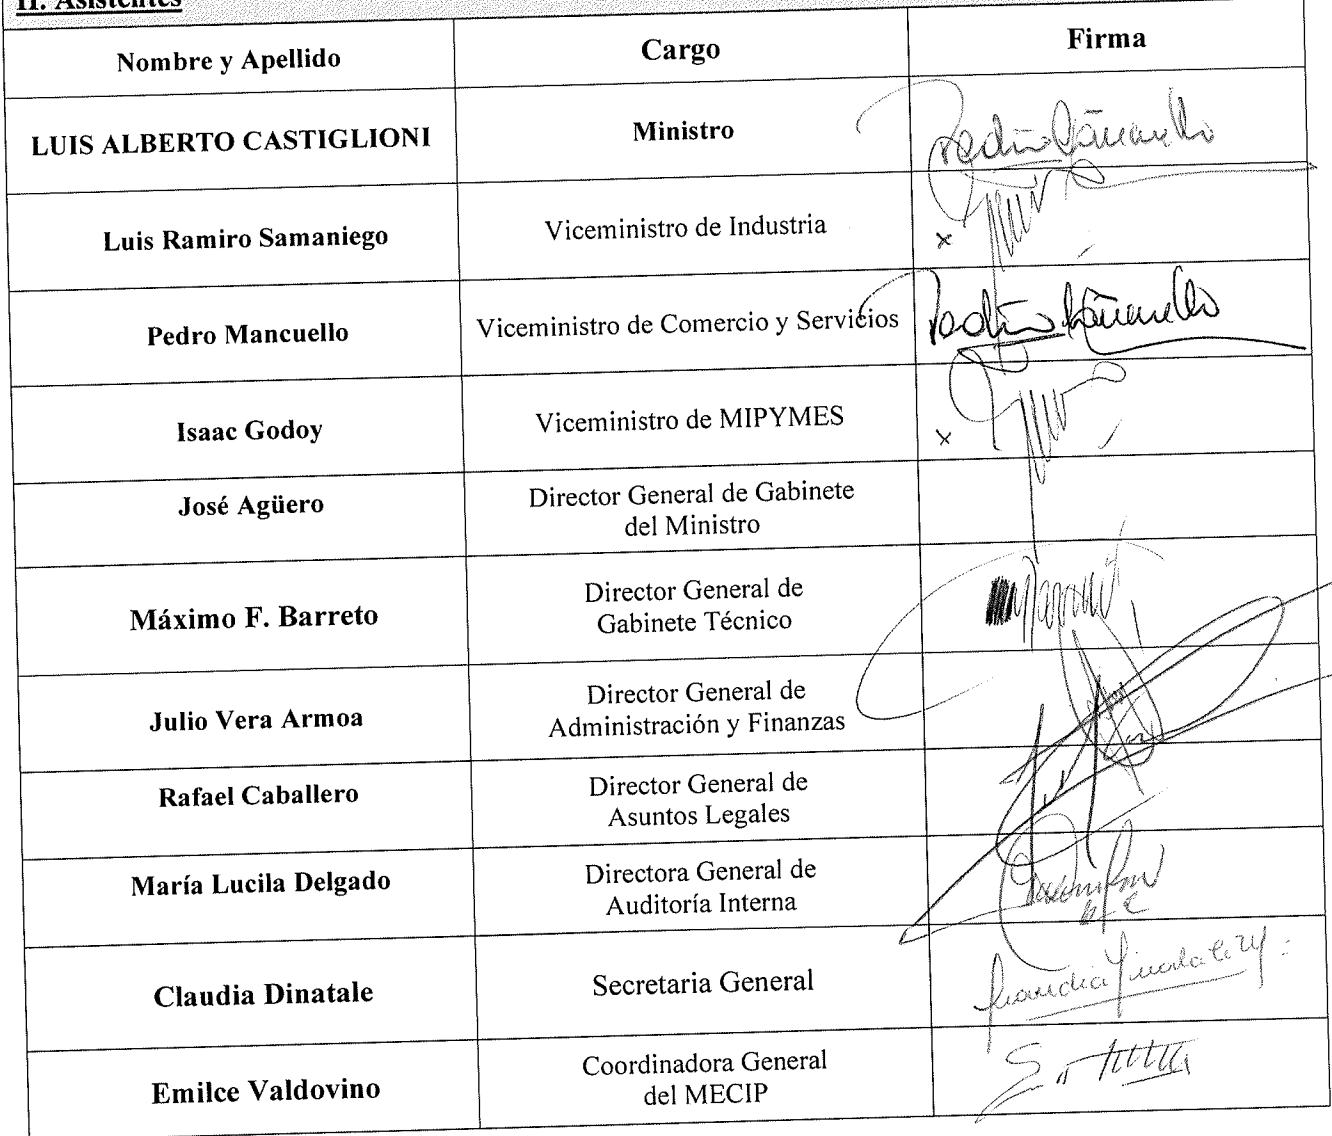 II. Asistentes
Nombre y Apellido Cargo Firma
LUIS ALBERTO CASTIGLIONI Ministro
Luis Ramiro Samaniego Viceministro de Industria x
Pedro Mancuello Viceministro de Comercio y Servicios
Isaac Godoy Viceministro de MIPYMES x
José Agüero Director General de Gabinete
del Ministro
Máximo F. Barreto Director General de
Gabinete Técnico
Julio Vera Armoa Director General de
Administración y Finanzas
Rafael Caballero Director General de
Asuntos Legales
María Lucila Delgado Directora General de
Auditoría Interna
Claudia Dinatale Secretaria General
Emilce Valdovino Coordinadora General
del MECIP